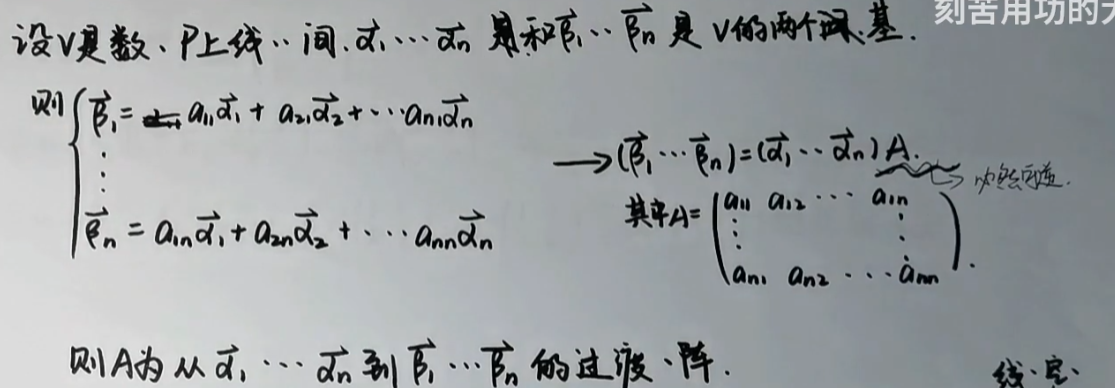 刻苦用功的
设V是数、P上线‥间.α⃗₁⋯α⃗ₙ 和β⃗₁‥β⃗ₙ 是V的两个基.
则 β⃗₁= a₁₁α⃗₁+ a₂₁α⃗₂+⋯aₙ₁α⃗ₙ
⋮
β⃗ₙ = a₁ₙα⃗₁+a₂ₙα⃗₂+⋯aₙₙα⃗ₙ
→(β⃗₁⋯β⃗ₙ)=(α⃗₁‥α⃗ₙ)A.
必然可逆.
其中A= (a₁₁ a₁₂ ⋯ a₁ₙ
⋮ ⋮
aₙ₁ aₙ₂ ⋯ aₙₙ).
则A为从α⃗₁⋯α⃗ₙ到β⃗₁⋯β⃗ₙ的过渡、阵.
线、空、